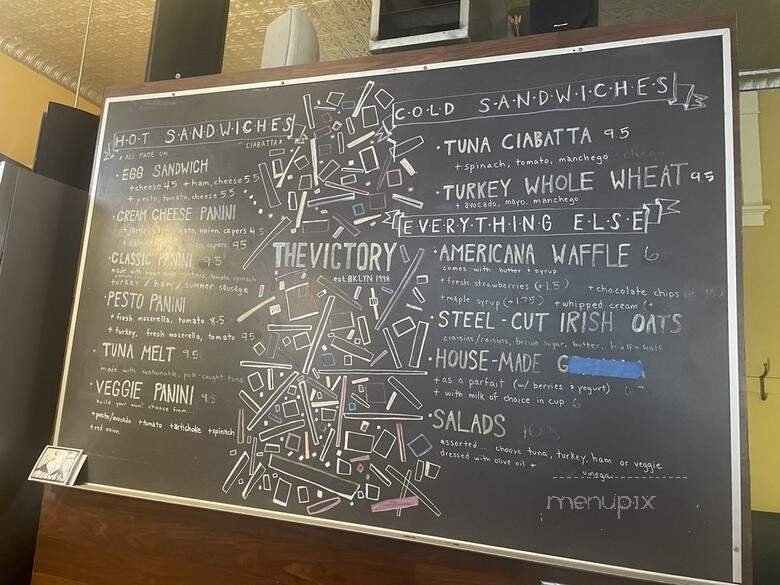 HOT SANDWICHES
* ALL MADE ON CIABATTA *
• EGG SANDWICH
+ cheese 4.5 + ham, cheese 5.5
+ pesto, tomato, cheese 5.5
• CREAM CHEESE PANINI
onion, capers 4.5
capers 9.5
• CLASSIC PANINI 9.5
made with tomato, spinach
turkey / ham / summer sausage
• PESTO PANINI
+ fresh mozerella, tomato 8.5
+ turkey, fresh mozerella, tomato 9.5
• TUNA MELT 9.5
made with sustainable, pole-caught tuna
• VEGGIE PANINI 9.5
build your own! choose from...
+pesto/avocado +tomato +artichoke +spinach
+red onion
THE VICTORY
est. BKLYN 1998
COLD SANDWICHES
• TUNA CIABATTA 9.5
+ spinach, tomato, manchego
• TURKEY WHOLE WHEAT 9.5
+ avocado, mayo, manchego
EVERYTHING ELSE
• AMERICANA WAFFLE 6
comes with butter + syrup
+ fresh strawberries (+1.5) + chocolate chips
+ maple syrup (+1.75) + whipped cream (+
• STEEL-CUT IRISH OATS
craisins/raisins, brown sugar, butter, half + half
• HOUSE-MADE G
+ as a parfait (w/ berries + yogurt)
+ with milk of choice in cup 6
• SALADS 10.5
assorted... choose tuna, turkey, ham or veggie
dressed with olive oil +
vinegar
menupix